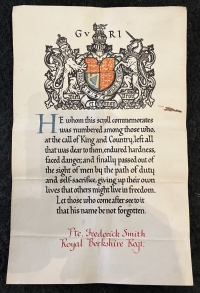 G V R I
HE whom this scroll commemorates
was numbered among those who,
at the call of King and Country, left all
that was dear to them, endured hardness,
faced danger, and finally passed out of
the sight of men by the path of duty
and self-sacrifice, giving up their own
lives that others might live in freedom.
Let those who come after see to it
that his name be not forgotten.
Pte. Frederick Smith
Royal Berkshire Regt.